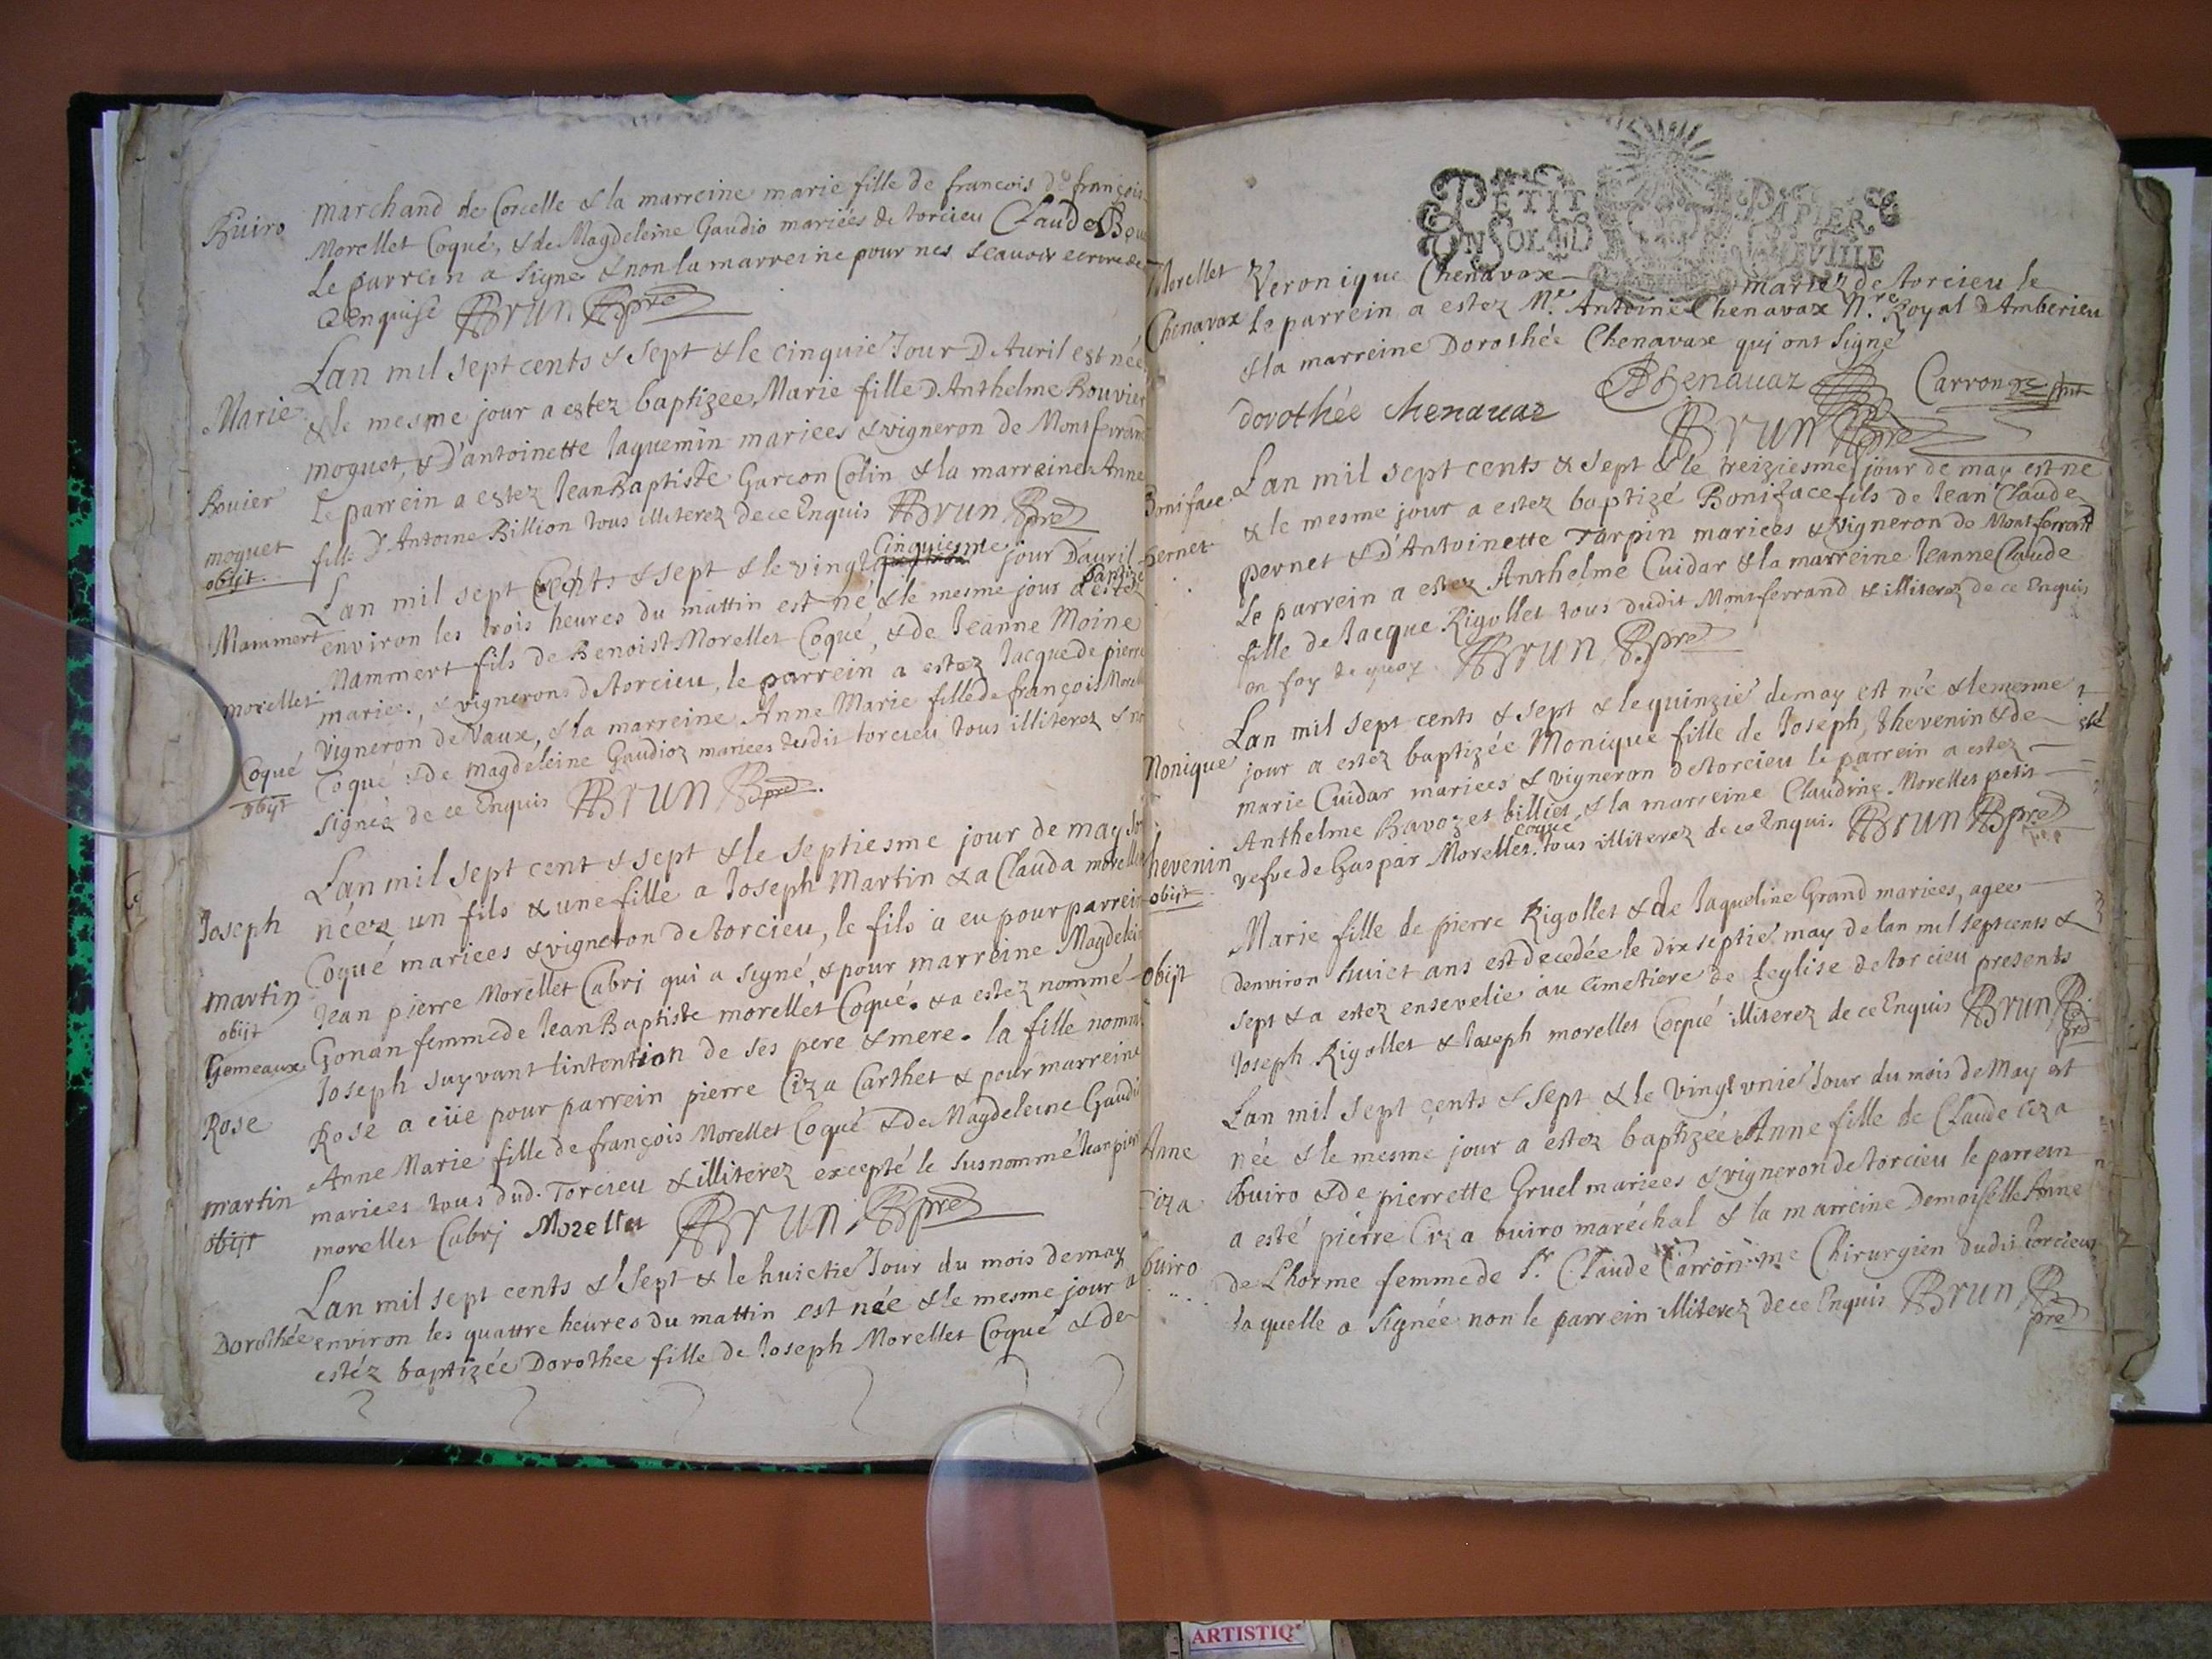 Buiro
marchand de Corcelle & la marreine marie fille de francois de françois
Morellet Coqué, & de Magdeleine Gaudio mariés de torcieu Claude
Le parrein a signé & non la marreine pour nes scauoir ecrire de
ce enquise Brun pre
Lan mil sept cents & sept & le cinquie Jour D Auril est née
Marie
& le mesme jour a estez baptizee Marie fille D Anthelme Bouvier
moquet, & D'antoinette Jaquemin mariees & vigneron de Montferrand
Bouier
Le parrein a estez Jean Baptiste Garcon Colin & la marreine Anne
moquet
obijt
fille D'Antoine Billion tous illiterez de ce Enquis Brun pre
Lan mil sept Cents & sept & le vingt cinquiesme jour D'auril
Mammert
environ les trois heures du mattin est né & le mesme jour a estez baptizé
Mammert fils de Benoist Morellet Coqué, & de Jeanne Moine
morellet
mariees, & vignerons de torcieu, le parrein a estez Jacque de pierre
Vigneron de Vaux, & la marreine Anne Marie fille de françois Morellet
Coqué
obijt
Coqué & de Magdeleine Gaudioz mariees dudit torcieu tous illiterez & non
signez de ce Enquis Brun pre
Lan mil sept cent & sept & le septiesme jour de may son
Joseph
néez un fils & une fille a Joseph Martin & a Clauda morellet
Coqué mariees & vigneron de torcieu, le fils a eu pour parrein
martin
obijt
Jean pierre Morellet Cabri qui a signé, & pour marreine Magdelei
Gemeaux
Gonan femme de Jean Baptiste morellet Coqué. & a estez nommé
Joseph suyvant lintention de ses pere & mere. la fille nommé
Rose
Rose a eüe pour parrein pierre Ciza Carthet & pour marreine
Anne Marie fille de françois Morellet Coqué & de Magdeleine Gaudio
martin
obijt
mariees tous dud. Torcieu & illiterez excepté le susnommé Jean pierre
morellet Cabri Morellet Brun pre
Lan mil sept cents & sept & le huictie Jour du mois de may
Dorothée
environ les quattre heures du mattin est née & le mesme jour a
estéz baptizée Dorothee fille de Joseph Morellet Coqué & de
PETIT PAPIER
UN SOL
Morellet
Veronique Chenavax mariez de torcieu le
Chenavax
Le parrein a estez Me. Antoine Chenavax Nre. Royal D Amberieu
& la marreine Dorothée Chenavax qui ont signé
dorothée chenauaz Chenauaz Carron
Brun pre
Lan mil sept cents & sept & le treiziesme jour de may est né
Boniface
& le mesme jour a estez baptizé Boniface fils de Jean Claude
pernet
pernet & D'Antoinette Tarpin mariees & vigneron de Montferrand
Le parrein a estez Anthelme Cuidar & la marreine Jeanne Claude
fille de Jacque Rigollet tous dudit Montferrand & illiterez de ce Enquis
en foy de quoy Brun pre
Lan mil sept cents & sept & le quinzie de may est née & le mesme
Monique
jour a estéz baptizée Monique fille de Joseph thevenin & de
marie Cuidar mariees & vigneron de torcieu le parrein a estez
Anthelme Bavozet billiet, & la marreine Claudine Morellet petit
thevenin
obijt
vefve de Gaspar Morellet coqué tous illiterez de ce Enquis Brun pre
Marie fille de pierre Rigollet & de Jaqueline Grand mariees, agee
obijt
denviron huict ans est decedée le dix septie may de lan mil sept cents &
sept & a estez ensevelie au Cimetiere de leglise de torcieu presents
Joseph Rigollet & Joseph morellet Coqué illiterez de ce Enquis Brun pre
Lan mil sept cents & sept & le vingt vnie Jour du mois de May est
Anne
née & le mesme jour a estez baptizée Anne fille de Claude Ciza
Ciza
buiro & de pierrette Gruel mariees & vigneron de torcieu le parrein
a esté pierre Ciza buiro maréchal & la marreine Demoiselle Anne
buiro
de Lhorme femme de Sr. Claude Carron me Chirurgien dudit torcieu
laquelle a signée non le parrein illiterez de ce Enquis Brun pre
ARTISTIQ